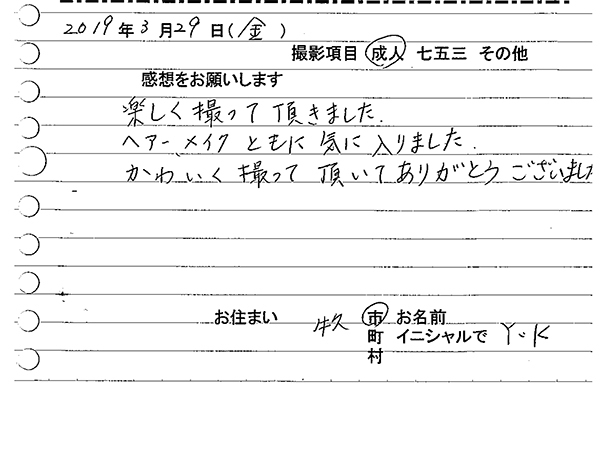 2019年3月29日(金)
撮影項目 成人 七五三 その他
感想をお願いします
楽しく撮って頂きました.
ヘアー、メイクともに気に入りました.
かわいく撮って頂いてありがとうございました
お住まい 牛久 市 お名前
町 イニシャルで Y・K
村